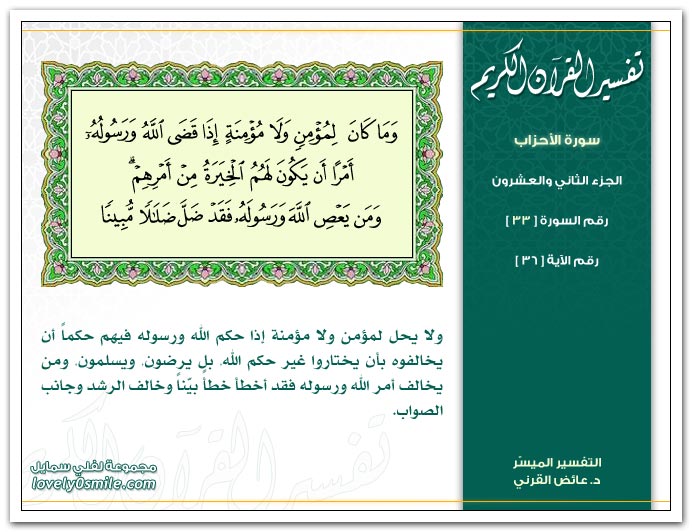 تفسير القرآن الكريم
سورة الأحزاب
الجزء الثاني والعشرون
رقم السورة [ ٣٣ ]
رقم الآية [ ٣٦ ]
وَمَا كَانَ لِمُؤْمِنٍ وَلَا مُؤْمِنَةٍ إِذَا قَضَى ٱللَّهُ وَرَسُولُهُۥٓ
أَمْرًا أَن يَكُونَ لَهُمُ ٱلْخِيَرَةُ مِنْ أَمْرِهِمْ ۗ
وَمَن يَعْصِ ٱللَّهَ وَرَسُولَهُۥ فَقَدْ ضَلَّ ضَلَـٰلًا مُّبِينًا
ولا يحل لمؤمن ولا مؤمنة إذا حكم الله ورسوله فيهم حكماً أن
يخالفوه بأن يختاروا غير حكم الله، بل يرضون، ويسلمون، ومن
يخالف أمر الله ورسوله فقد أخطأ خطأ بيّناً وخالف الرشد وجانب
الصواب.
تفسير القرآن الكريم
التفسير الميسّر
د. عائض القرني
مجموعة لفلي سمايل
lovely0smile.com